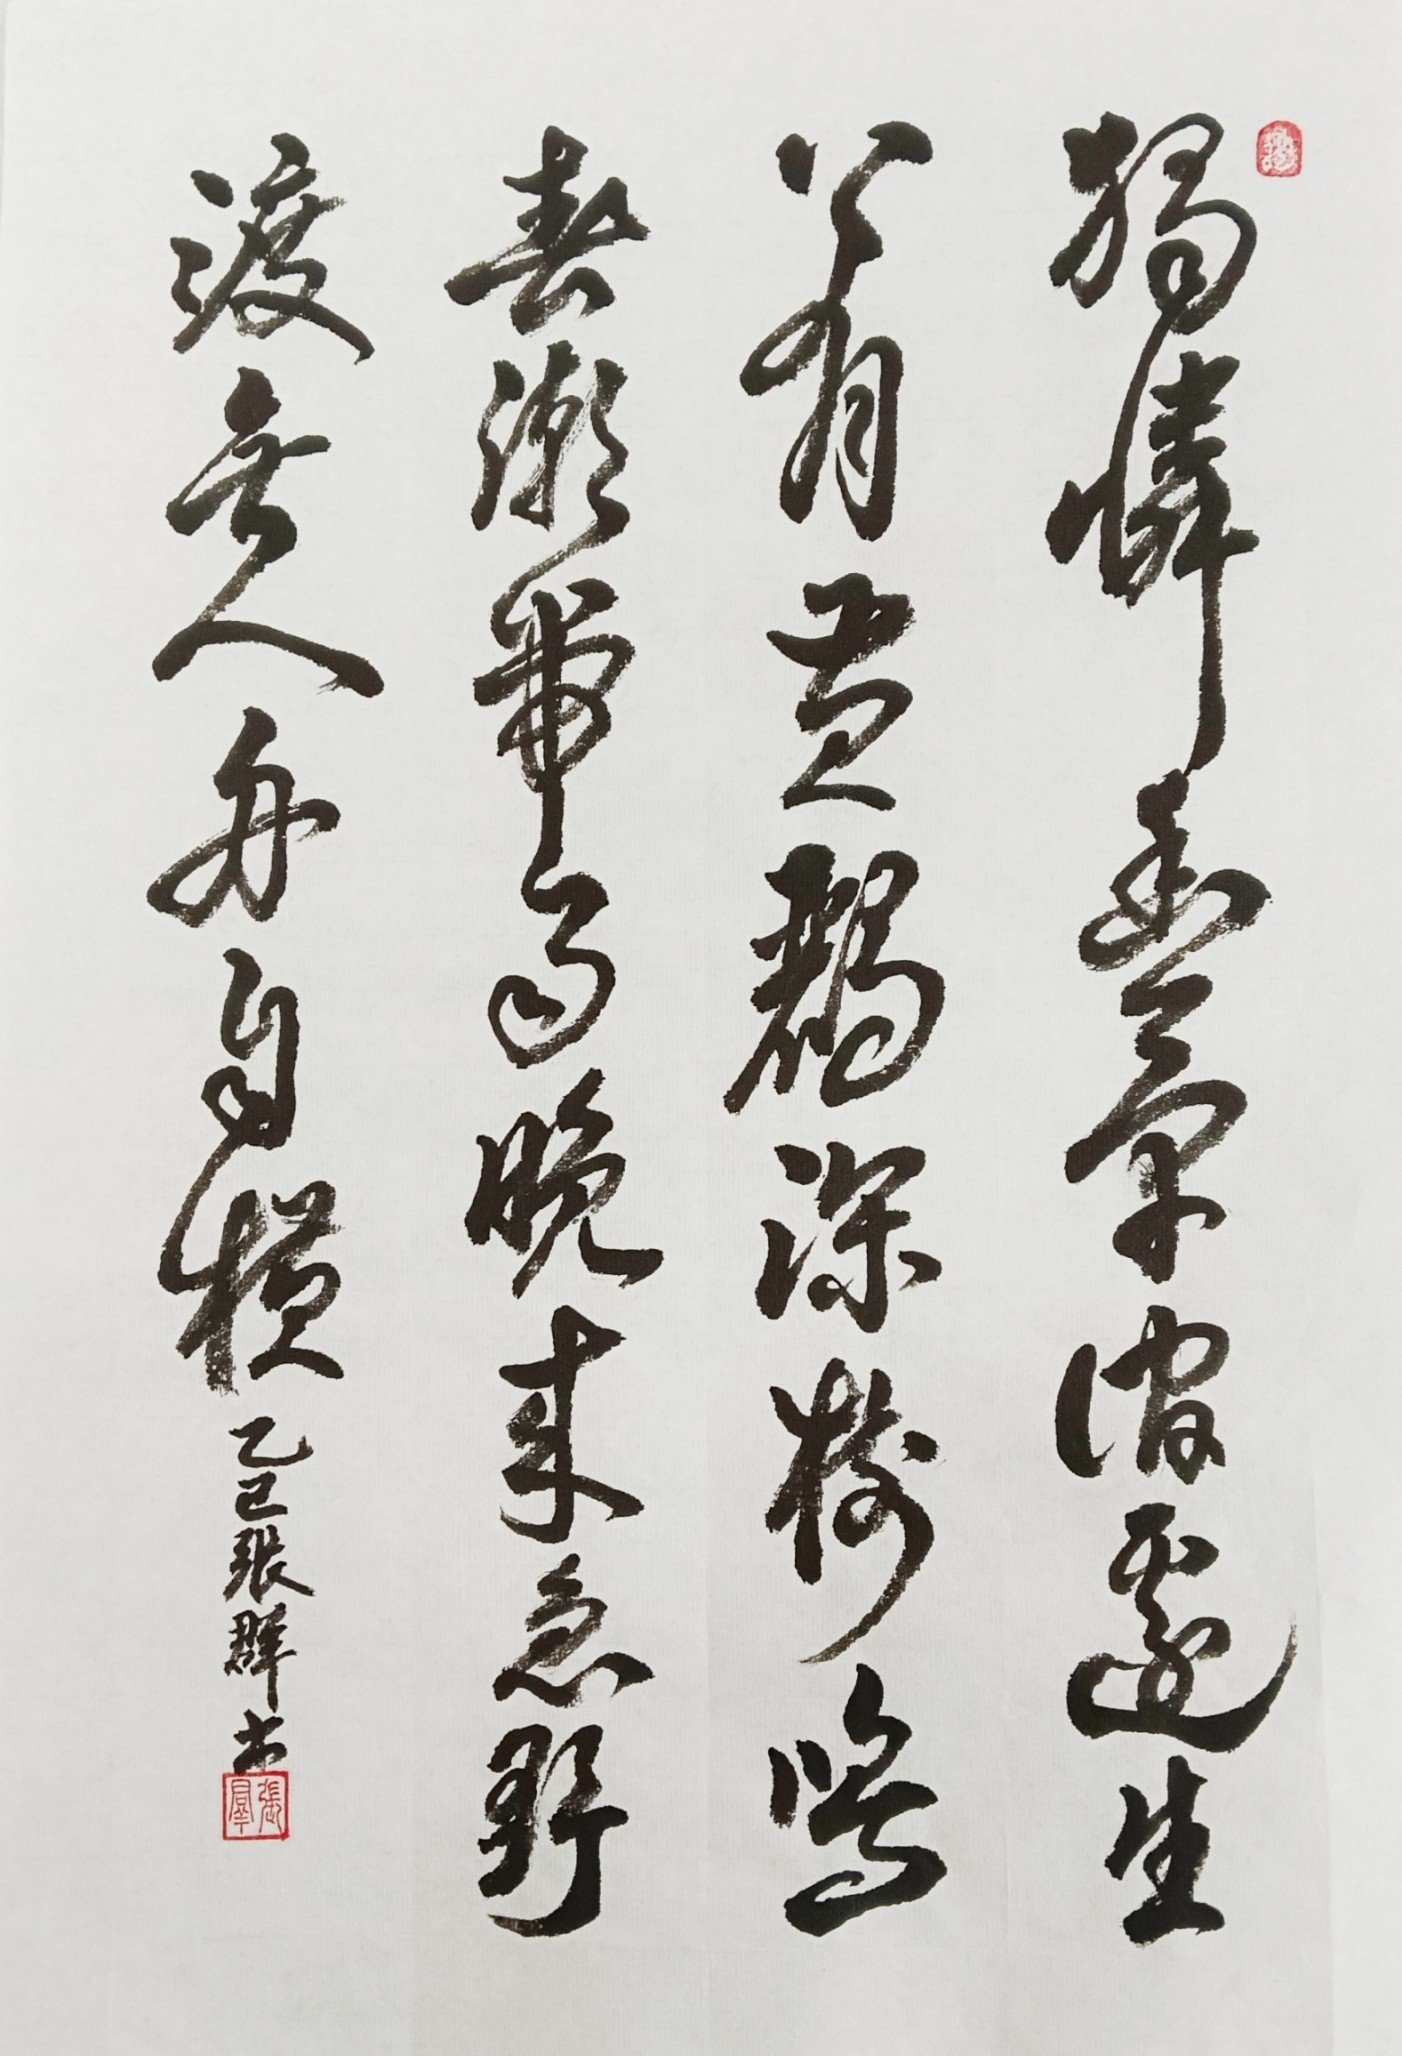 獨憐幽草澗邊生
上有黃鸝深樹鳴
春潮帶雨晚來急野
渡無人舟自橫 乙巳張群书
張羣